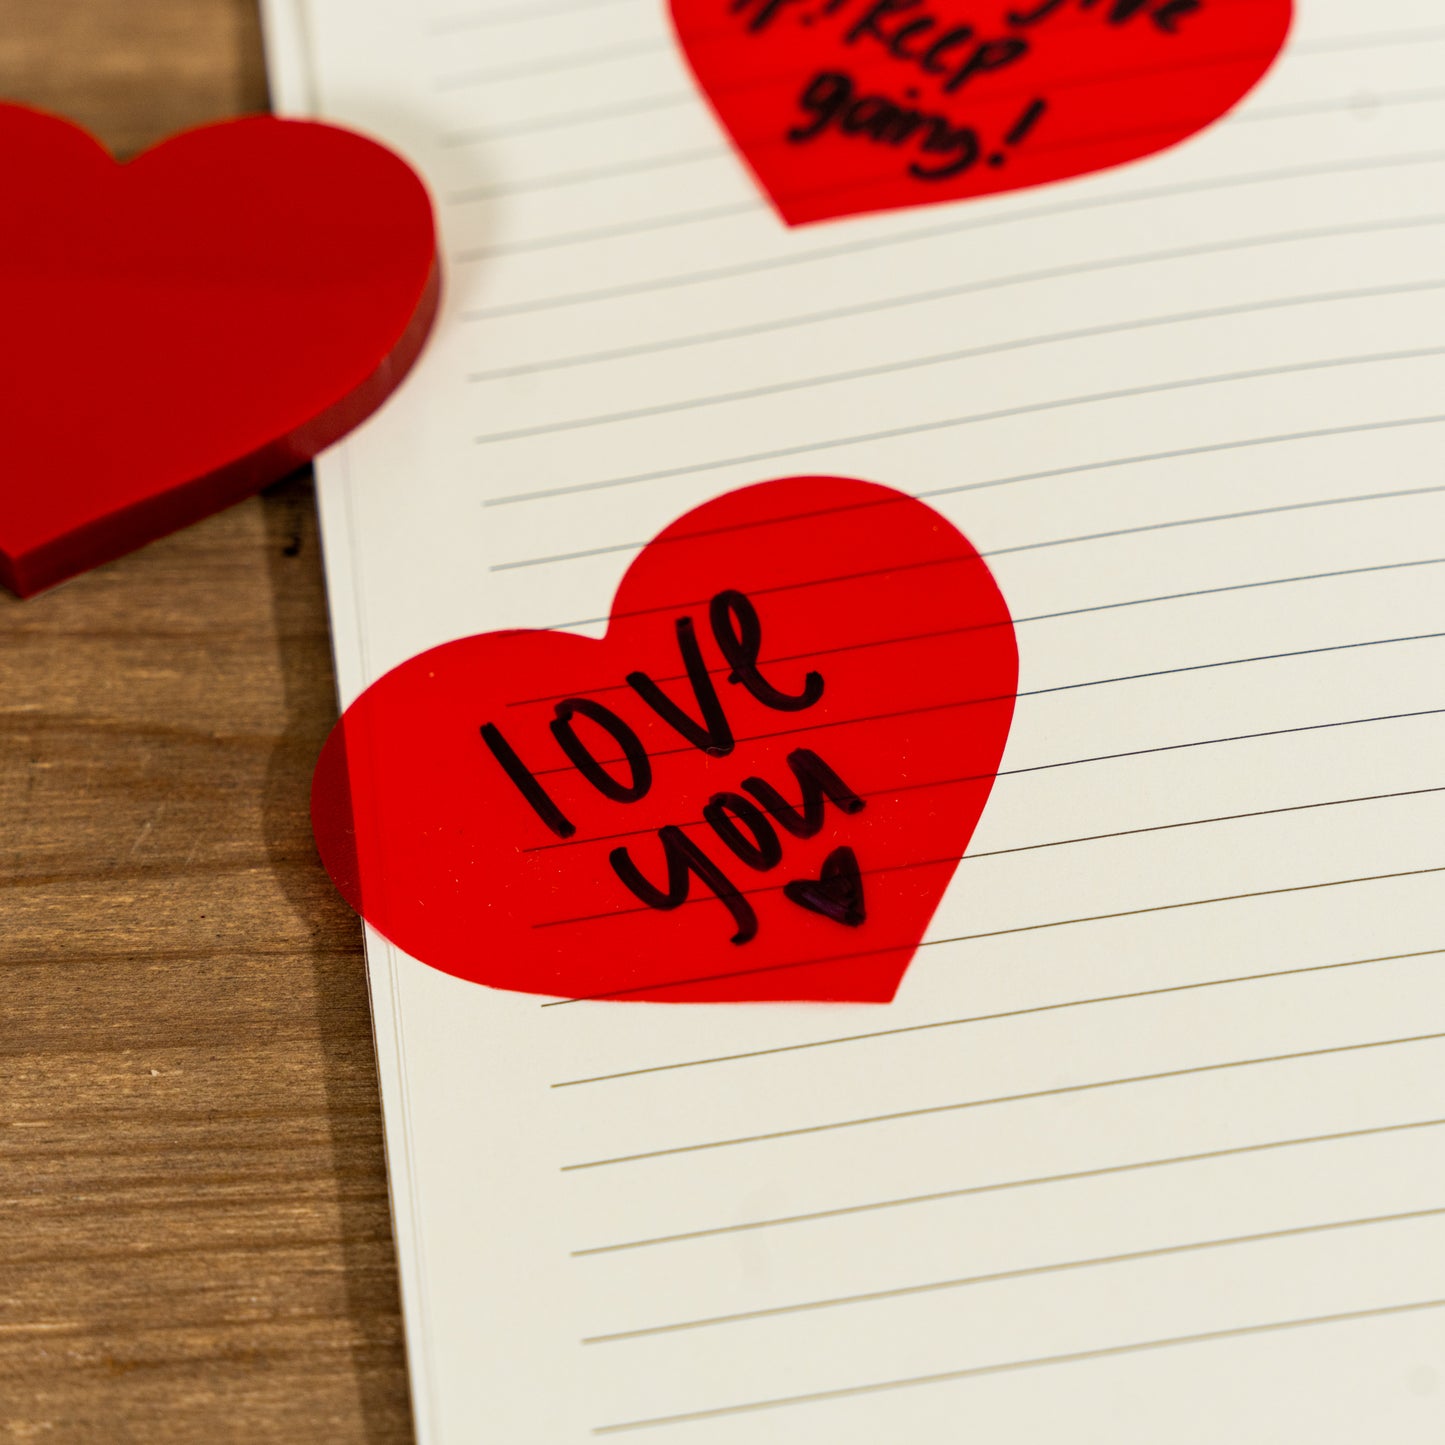 Keep
going!
love
you